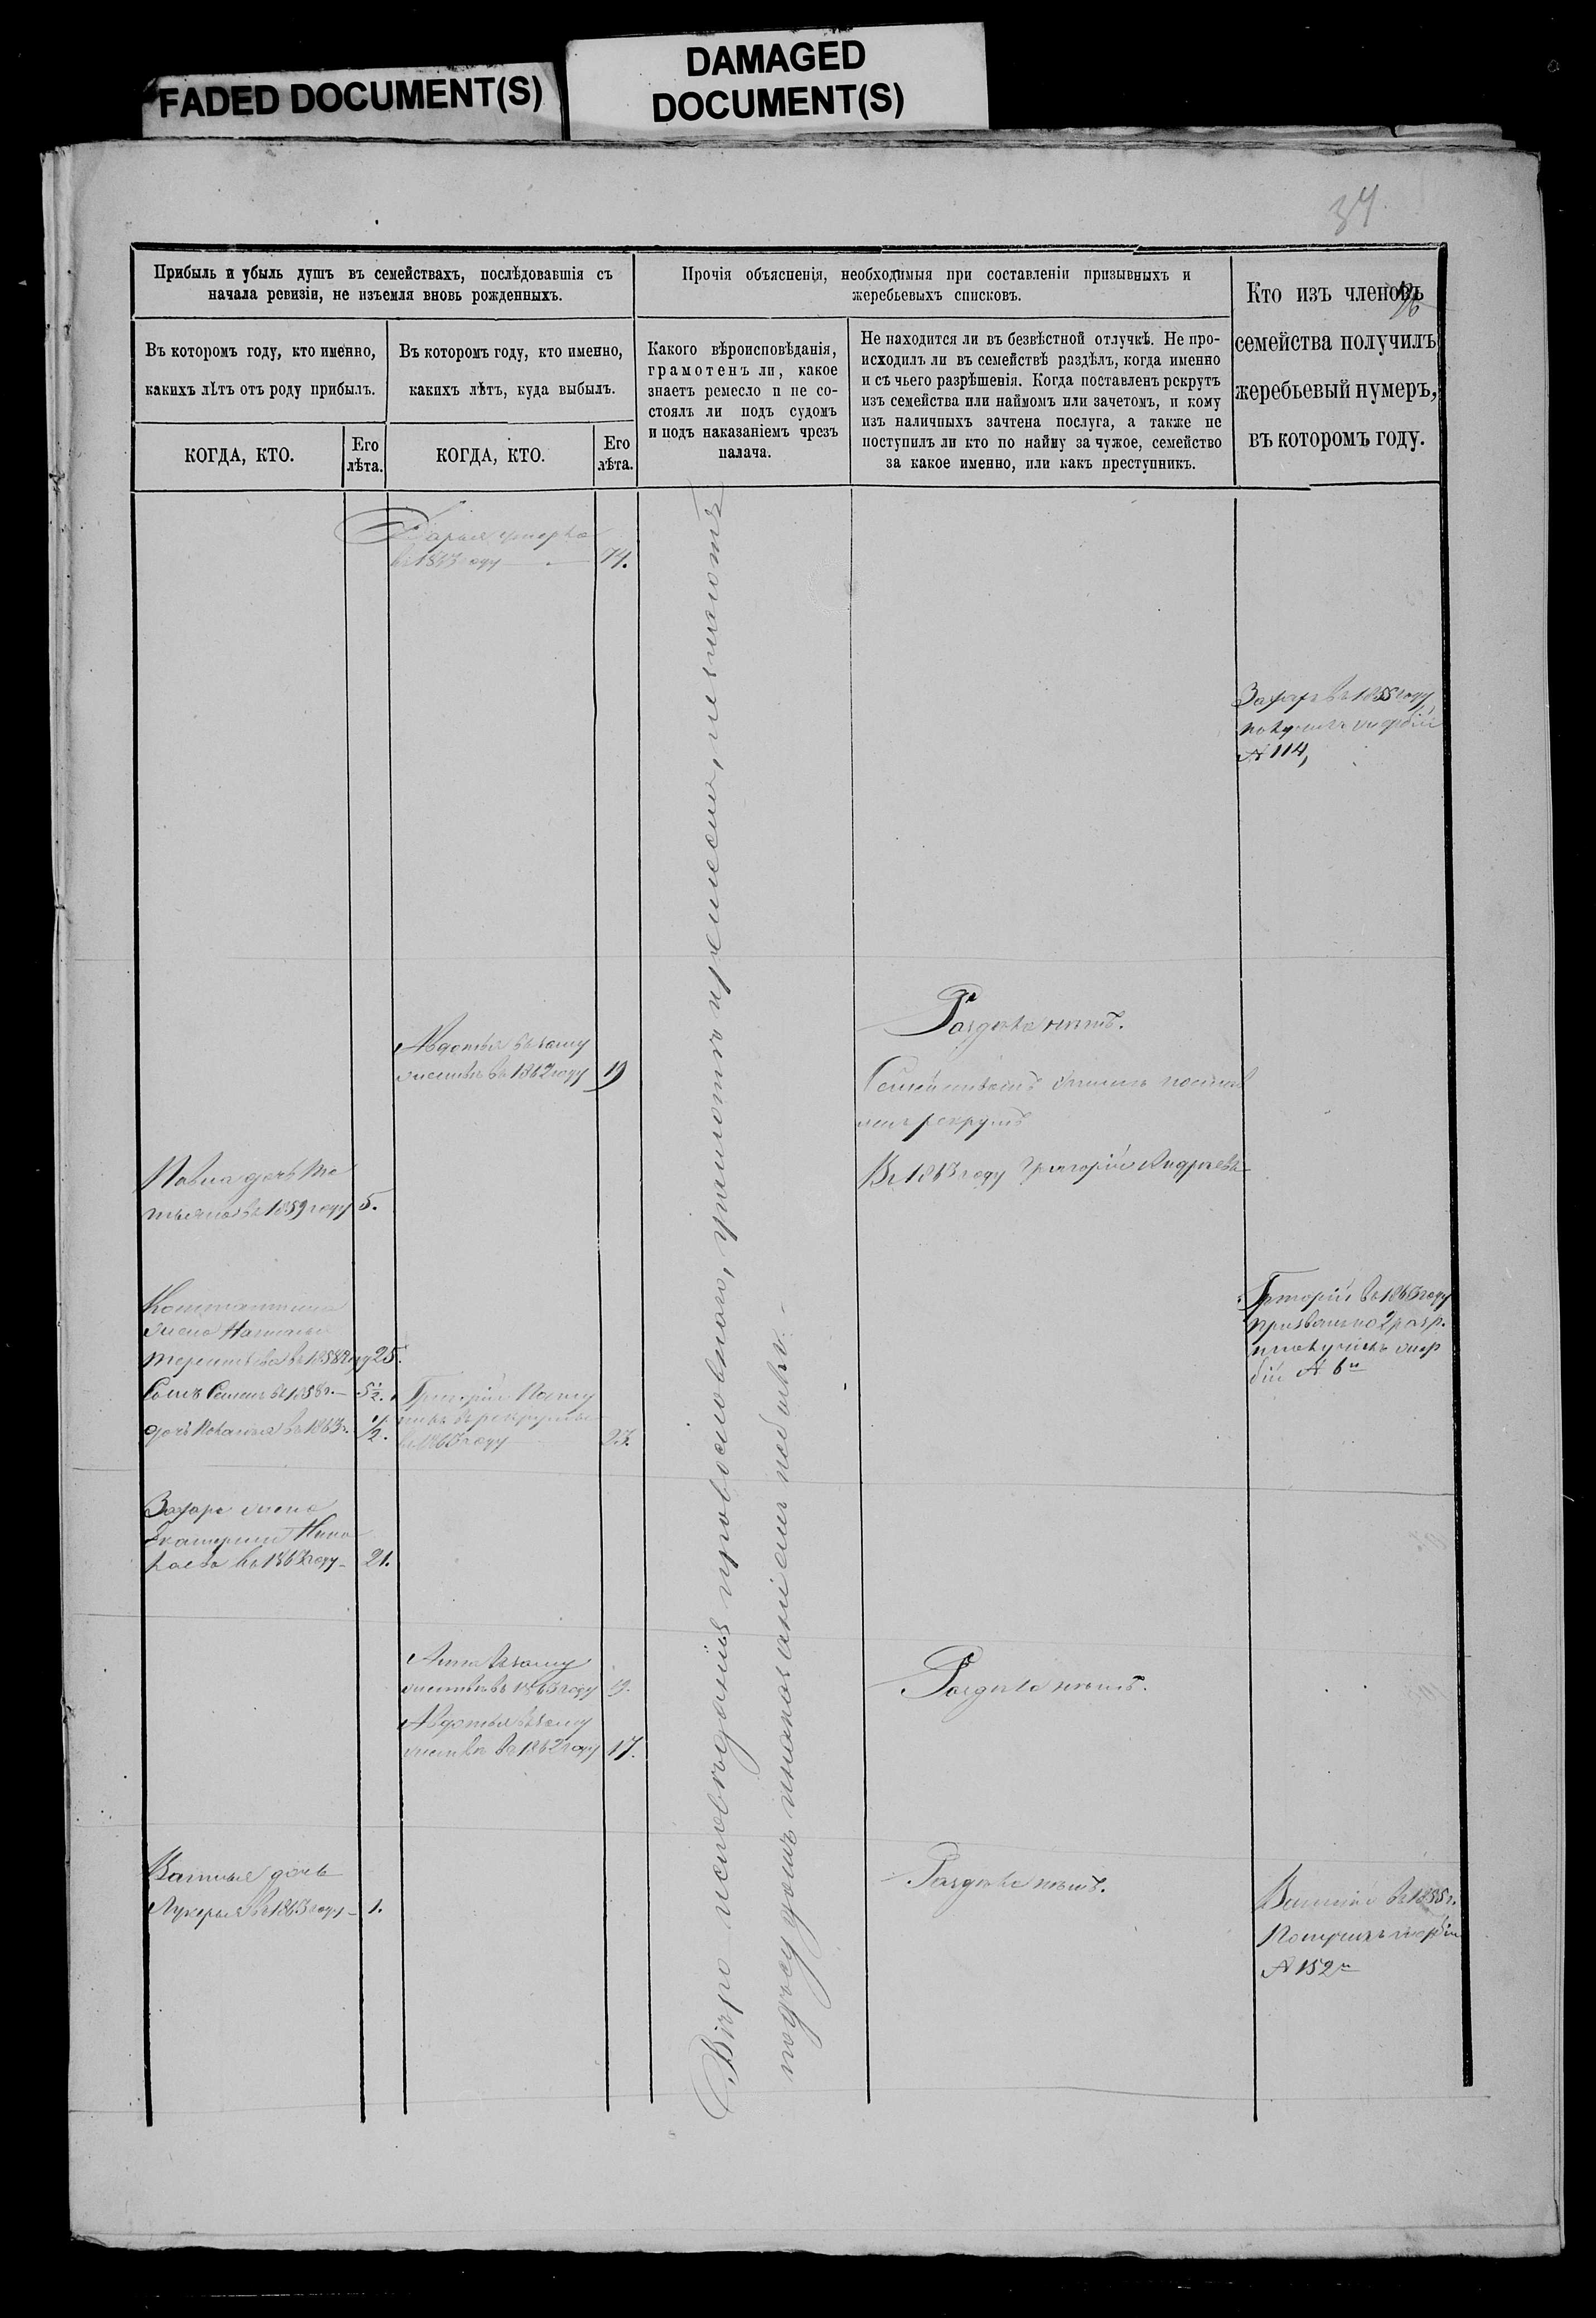 FADED DOCUMENT(S)
DAMAGED
DOCUMENT(S)
34
Прибыль и убыль душъ въ семействахъ, послѣдовавшія съ
начала ревизіи, не изъемля вновь рожденныхъ.
Прочія объясненія, необходимыя при составленіи призывныхъ и
жеребьевыхъ списковъ.
Кто изъ членовъ
семейства получилъ
жеребьевый нумеръ,
въ которомъ году.
Въ которомъ году, кто именно,
какихъ лѣтъ отъ роду прибылъ.
Въ которомъ году, кто именно,
какихъ лѣтъ, куда выбылъ.
Какого вѣроисповѣданія,
грамотенъ ли, какое
знаетъ ремесло и не со-
стоялъ ли подъ судомъ
и подъ наказаніемъ чрезъ
палача.
Не находится ли въ безвѣстной отлучкѣ. Не про-
исходилъ ли въ семействѣ раздѣлъ, когда именно
и съ чьего разрѣшенія. Когда поставленъ рекрутъ
изъ семейства или наймомъ или зачетомъ, и кому
изъ наличныхъ зачтена послуга, а также не
поступилъ ли кто по найму за чужое, семейство
за какое именно, или какъ преступникъ.
КОГДА, КТО.
Его
лѣта.
КОГДА, КТО.
Его
лѣта.
Дарья умерла
въ 1863 году 74.
Захаръ въ 1855 году
получилъ жербій
№ 114,
Раздѣла нѣтъ.
Авдотья въ заму
жествѣ въ 1862 году 19
Семействомъ
рекрутъ
Въ 1863 году Григорій Андреевъ
Павла дочь Та
тьяна въ 1859 году 5.
Константина
жена Наталья
въ 1858 году 25.
Сынъ Семенъ въ 1858 г. 5½.
дочь Пелагея въ 1863 г. ½.
Григорій
въ рекруты
въ 1863 году 23.
Григорій въ 1863 году
призванъ по 2 разр.
и получилъ жер
бій № 6й
Захара жена
Екатерина
въ 1862 году 21.
Анна въ заму
жествѣ въ 1863 году 19.
Авдотья въ заму
жествѣ въ 1862 году 17.
Раздѣла нѣтъ.
Василья дочь
Лукерья въ 1863 году 1.
Раздѣла нѣтъ.
Василій въ 1855 г.
Получилъ жербій
№ 152й
Вѣро исповѣданія православнаго, грамоты и ремесла, не знаютъ
подъ судомъ и наказаніемъ не были.